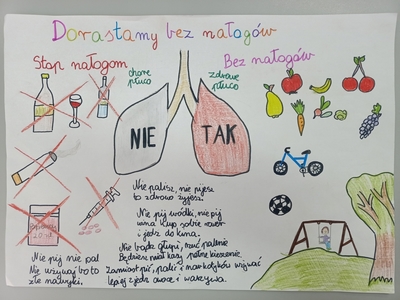 Dorastamy bez nałogów
Stop nałogom
chore
płuco
zdrowe
płuco
Bez nałogów
NIE
TAK
Nie palisz, nie pijesz
to zdrowo żyjesz.
Nie pij wódki, nie pij
wina kup sobie rower
i jedź do kina.
Nie bądź głupi, rzuć palenie
Będziesz miał kasy pełne kieszenie.
Zamiast pić, palić i narkotyków używać
lepiej zjedz owoce i warzywa.
Nie pij nie pal
Nie używaj bo to
złe nawyki.